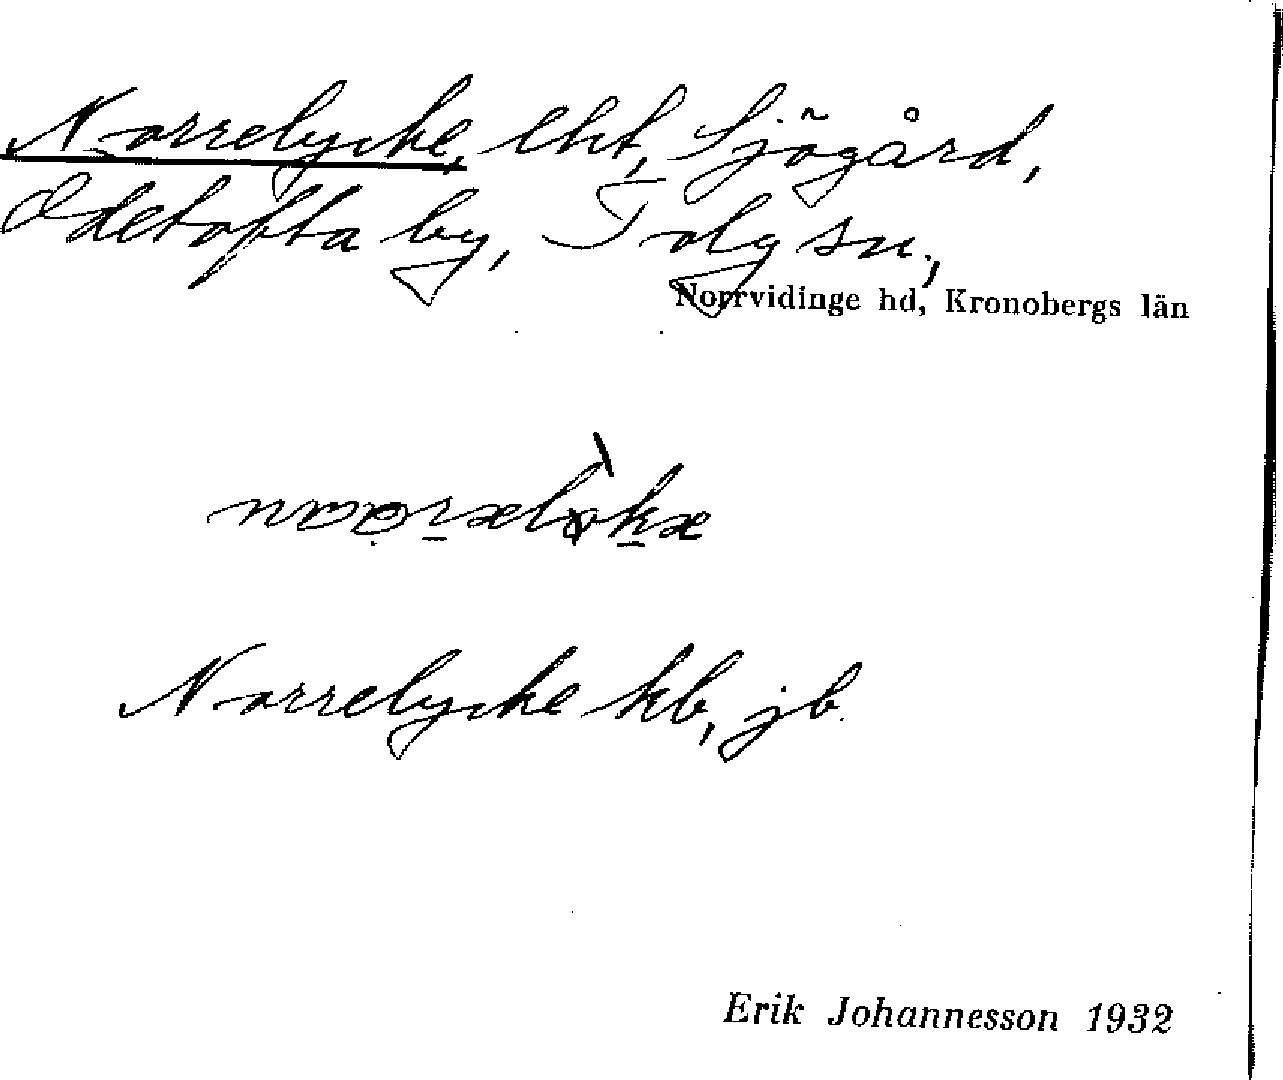 Norrelycke, lht, Sjögård,
Odetofta by, Tolg sn.,
Norrvidinge hd, Kronobergs län
Norrelycke kb, jb.
Erik Johannesson 1932